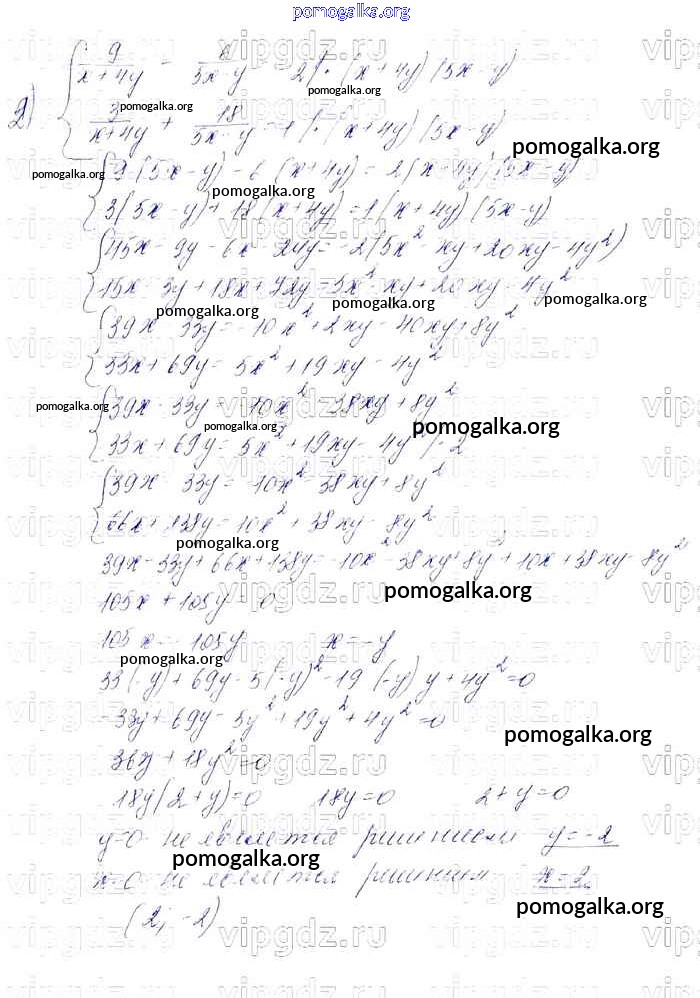 pomogalka.org
2) { 9/(x+4y) - 6/(5x-y) = -2 | · (x+4y)(5x-y)
3/(x+4y) + 18/(5x-y) = 1 | · (x+4y)(5x-y)
{ 9(5x-y) - 6(x+4y) = -2(x+4y)(5x-y)
3(5x-y) + 18(x+4y) = 1(x+4y)(5x-y)
{ 45x - 9y - 6x - 24y = -2(5x² - xy + 20xy - 4y²)
15x - 3y + 18x + 72y = 5x² - xy + 20xy - 4y²
{ 39x - 33y = -10x² + 2xy - 40xy + 8y²
33x + 69y = 5x² + 19xy - 4y²
{ 39x - 33y = -10x² - 38xy + 8y²
33x + 69y = 5x² + 19xy - 4y² | · 2
{ 39x - 33y = -10x² - 38xy + 8y²
66x + 138y = 10x² + 38xy - 8y²
39x - 33y + 66x + 138y = -10x² - 38xy + 8y² + 10x + 38xy - 8y²
105x + 105y = 0
105x = -105y x = -y
33(-y) + 69y - 5(-y)² - 19(-y)y + 4y² = 0
-33y + 69y - 5y² + 19y² + 4y² = 0
36y + 18y² = 0
18y(2+y) = 0 18y = 0 2+y = 0
y=0 не является решением y = -2
x=0 не является решением x = 2
(2; -2)